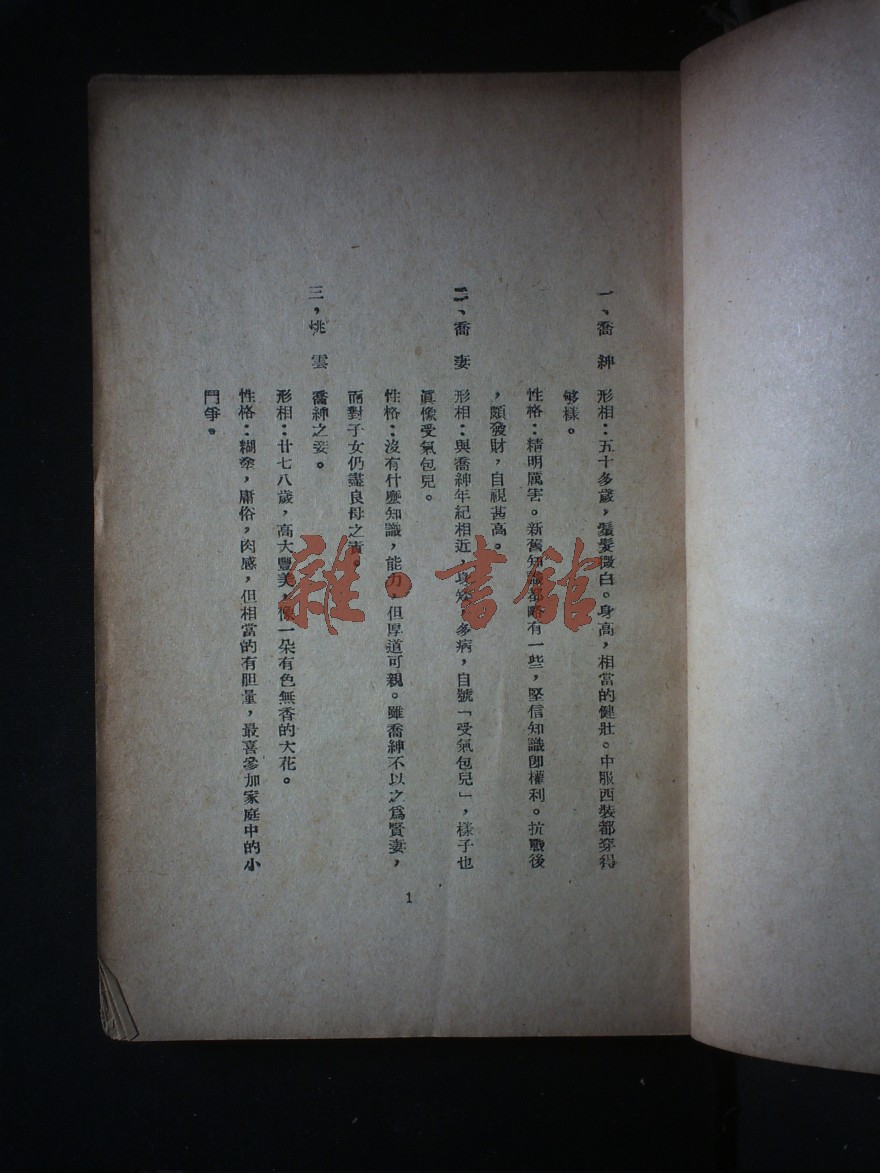 一、喬紳 形相：五十多歲，鬚髮微白。身高，相當的健壯。中服西裝都穿得
够樣。
性格：精明厲害。新舊知識都略有一些，堅信知識卽權利。抗戰後
，頗發財，自視甚高。
二、喬妻 形相：與喬紳年紀相近，身矮，多病，自號「受氣包兒」，樣子也
眞像受氣包兒。
性格：沒有什麼知識，能力，但厚道可親。雖喬紳不以之爲賢妻，
而對子女仍盡良母之責。
三，桃雲 喬紳之妾。
形相：廿七八歲，高大豐美，像一朵有色無香的大花。
性格：糊塗，庸俗，肉感，但相當的有胆量，最喜參加家庭中的小
鬥爭。
1
雜·書館